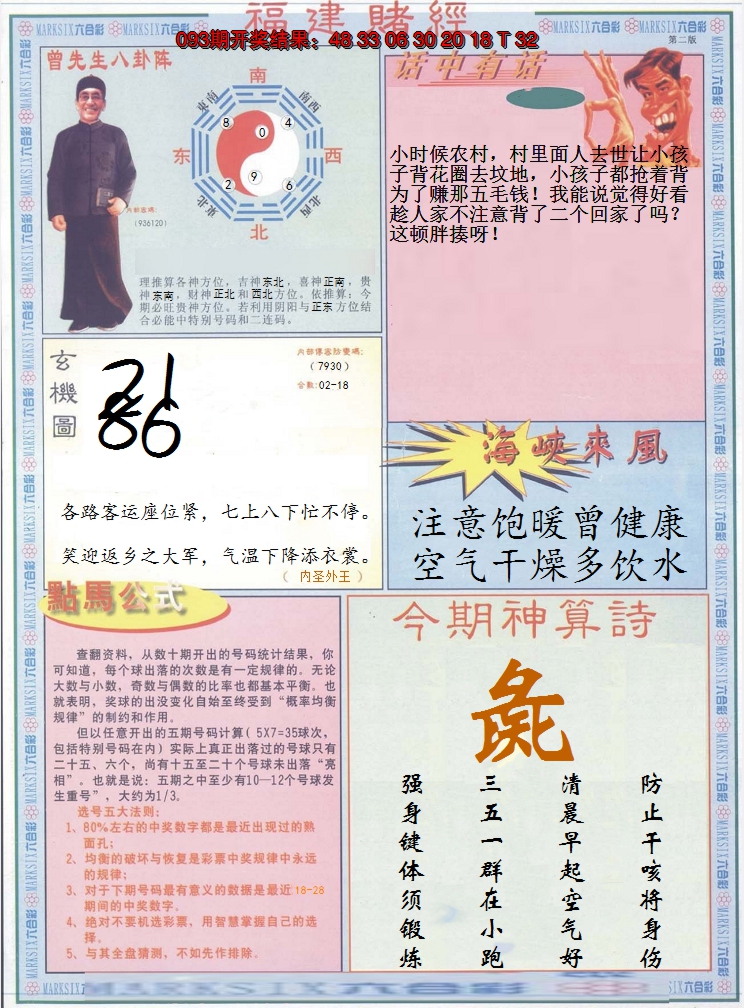 福建賭經
093期开奖结果：48 33 06 30 20 18 T 32
MARKSIX六合彩 MARKSIX六合彩 MARKSIX六合彩
第二版
曾先生八卦阵
南
东南
南西
8 0 4
东
西
2 9 6
東北
北西
北
内部密碼:
（936120）
理推算各神方位，吉神东北，喜神正南，贵
神东南，财神正北和西北方位。依推算：今
期必旺贵神方位。若利用阴阳与正东方位结
合必能中特别号码和二连码。
话中有话
小时候农村，村里面人去世让小孩
子背花圈去坟地，小孩子都抢着背
为了赚那五毛钱！我能说觉得好看
趁人家不注意背了二个回家了吗？
这顿胖揍呀！
玄機圖
21
86
内部傳密防變碼:
（7930）
合數:02-18
各路客运座位紧，七上八下忙不停。
笑迎返乡之大军，气温下降添衣裳。
（ 内圣外王 ）
海峽來風
注意饱暖曾健康
空气干燥多饮水
點馬公式
查翻资料，从数十期开出的号码统计结果，你
可知道，每个球出落的次数是有一定规律的。无论
大数与小数，奇数与偶数的比率也都基本平衡。也
就表明，奖球的出没变化自始至终受到“概率均衡
规律”的制约和作用。
但以任意开出的五期号码计算( 5X7=35球次，
包括特别号码在内）实际上真正出落过的号球只有
二十五、六个，尚有十五至二十个号球未出落“亮
相”。也就是说：五期之中至少有10—12个号球发
生重号”，大约为1/3。
选号五大法则：
1、80%左右的中奖数字都是最近出现过的熟
面孔；
2、均衡的破坏与恢复是彩票中奖规律中永远
的规律；
3、对于下期号码最有意义的数据是最近18-28
期间的中奖数字。
4、绝对不要机选彩票，用智慧掌握自己的选
择。
5、与其全盘猜测，不如先作排除。
今期神算詩
强身键体须锻炼
三五一群在小跑
清晨早起空气好
防止干咳将身伤